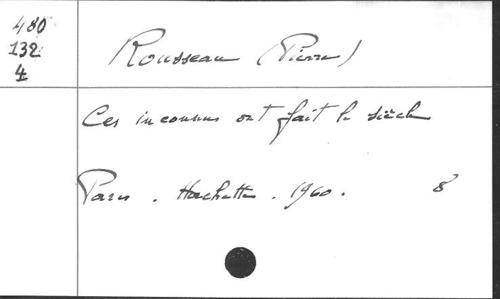 480
132
4
Rousseau (Pierre)
Ces inconnus ont fait le siècle
Paris. Hachette. 1960. 8°